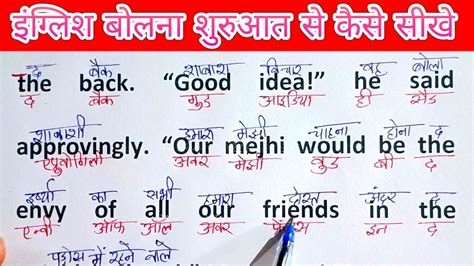 इंग्लिश बोलना शुरुआत से कैसे सीखे
द बैक शाबाश विचार वह बोला
the back. “Good idea!” he said
द बैक गुड आइडिया ही सैड
शाबाशी हमारा मेझी चाहना होना द
approvingly. “Our mejhi would be the
एप्रूविंगली अवर मेझी वुड बी द
ईर्ष्या का सभी हमारा दोस्त अंदर द
envy of all our friends in the
एन्वी ऑफ ऑल अवर इन द
पड़ोस में रहने वाले